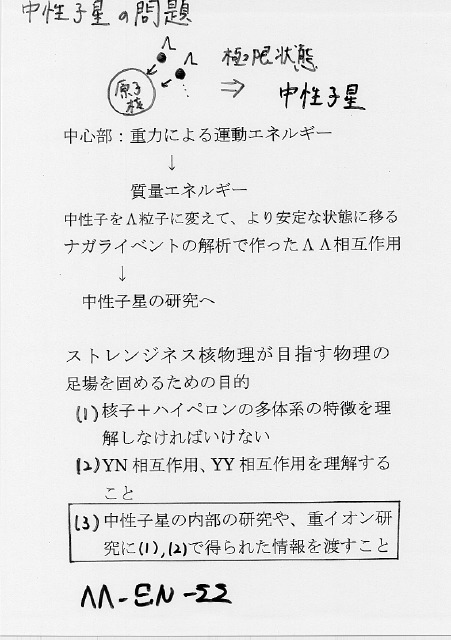 中性子星の問題
Λ
Λ
原子核
極限状態
⇒ 中性子星
中心部：重力による運動エネルギー
↓
質量エネルギー
中性子をΛ粒子に変えて、より安定な状態に移る
ナガライベントの解析で作ったΛΛ相互作用
↓
中性子星の研究へ
ストレンジネス核物理が目指す物理の
足場を固めるための目的
(1) 核子＋ハイペロンの多体系の特徴を理
解しなければいけない
(2) YN 相互作用、YY 相互作用を理解する
こと
(3) 中性子星の内部の研究や、重イオン研
究に(1),(2)で得られた情報を渡すこと
ΛΛ-ΞN-ΣΣ